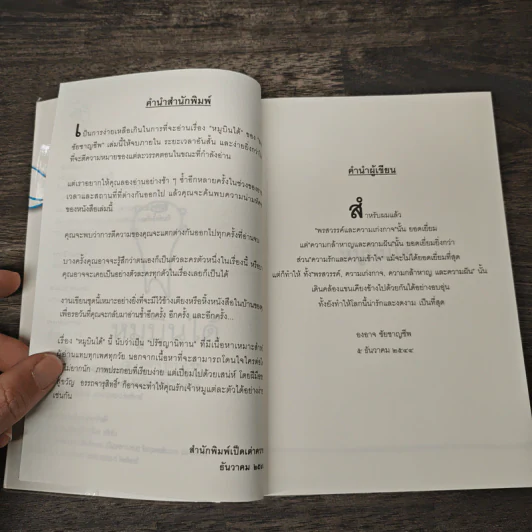 คำนำสำนักพิมพ์
เป็นการง่ายเหลือเกินในการที่จะอ่านเรื่อง "หมูบินได้" ของ
ชัยชาญชีพ" เล่มนี้ให้จบภายใน ระยะเวลาอันสั้น และง่ายยิ่งกว่า
ที่จะตีความหมายของแต่ละวรรคตอนในขณะที่กำลังอ่าน
แต่เราอยากให้คุณลองอ่านอย่างช้า ๆ ซ้ำอีกหลายครั้งในช่วงของ
เวลาและสถานที่ที่ต่างกันออกไป แล้วคุณจะค้นพบความน่า
ของหนังสือเล่มนี้
คุณจะพบว่าการตีความของคุณจะแตกต่างกันออกไปทุกครั้งที่อ่าน
บางครั้งคุณอาจจะรู้สึกว่าตนเองก็เป็นตัวละครตัวหนึ่งในเรื่องนี้ หรือ
คุณอาจจะเคยเป็นอย่างตัวละครทุกตัวในเรื่องเลยก็เป็นได้
งานเขียนชุดนี้เหมาะอย่างยิ่งที่จะมีไว้ข้างเตียงหรือทิ้งหนังสือในบ้านของ
เพื่อรอวันที่คุณจะกลับมาอ่านซ้ำอีกครั้ง อีกครั้ง และอีกครั้ง...
เรื่อง "หมูบินได้" นี้ นับว่าเป็น "ปรัชญานิทาน" ที่มีเนื้อหาเหมาะสำ
อ่านแทบทุกเพศทุกวัย นอกจากเนื้อหาที่จะสามารถโดนใจใคร
ไม่ยากนัก ภาพประกอบที่เรียบง่าย แต่เปี่ยมไปด้วยเสน่ห์ โดยฝีมือ
อรรถจารุสิทธิ์" ก็อาจจะทำให้คุณรักเจ้าหมูแต่ละตัวได้อย่าง
เช่นกัน
สำนักพิมพ์เป็ดเต่า
ธันวาคม
คำนำผู้เขียน
สำหรับผมแล้ว
"พรสวรรค์และความเก่งกาจ"นั้น ยอดเยี่ยม
แต่"ความกล้าหาญและความฝัน"นั้น ยอดเยี่ยมยิ่งกว่า
ส่วน"ความรักและความเข้าใจ" แม้จะไม่ได้ยอดเยี่ยมที่สุด
แต่ก็ทำให้ ทั้ง"พรสวรรค์, ความเก่งกาจ, ความกล้าหาญ และความฝัน" นั้น
เดินคล้องแขนเคียงข้างไปด้วยกันได้อย่างอบอุ่น
ทั้งยังทำให้โลกนี้น่ารักและงดงาม เป็นที่สุด
องอาจ ชัยชาญชีพ
๕ ธันวาคม ๒๕๔๔